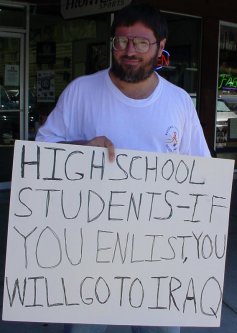 HIGH SCHOOL
STUDENTS-IF
YOU ENLIST, YOU
WILL GO TO IRAQ